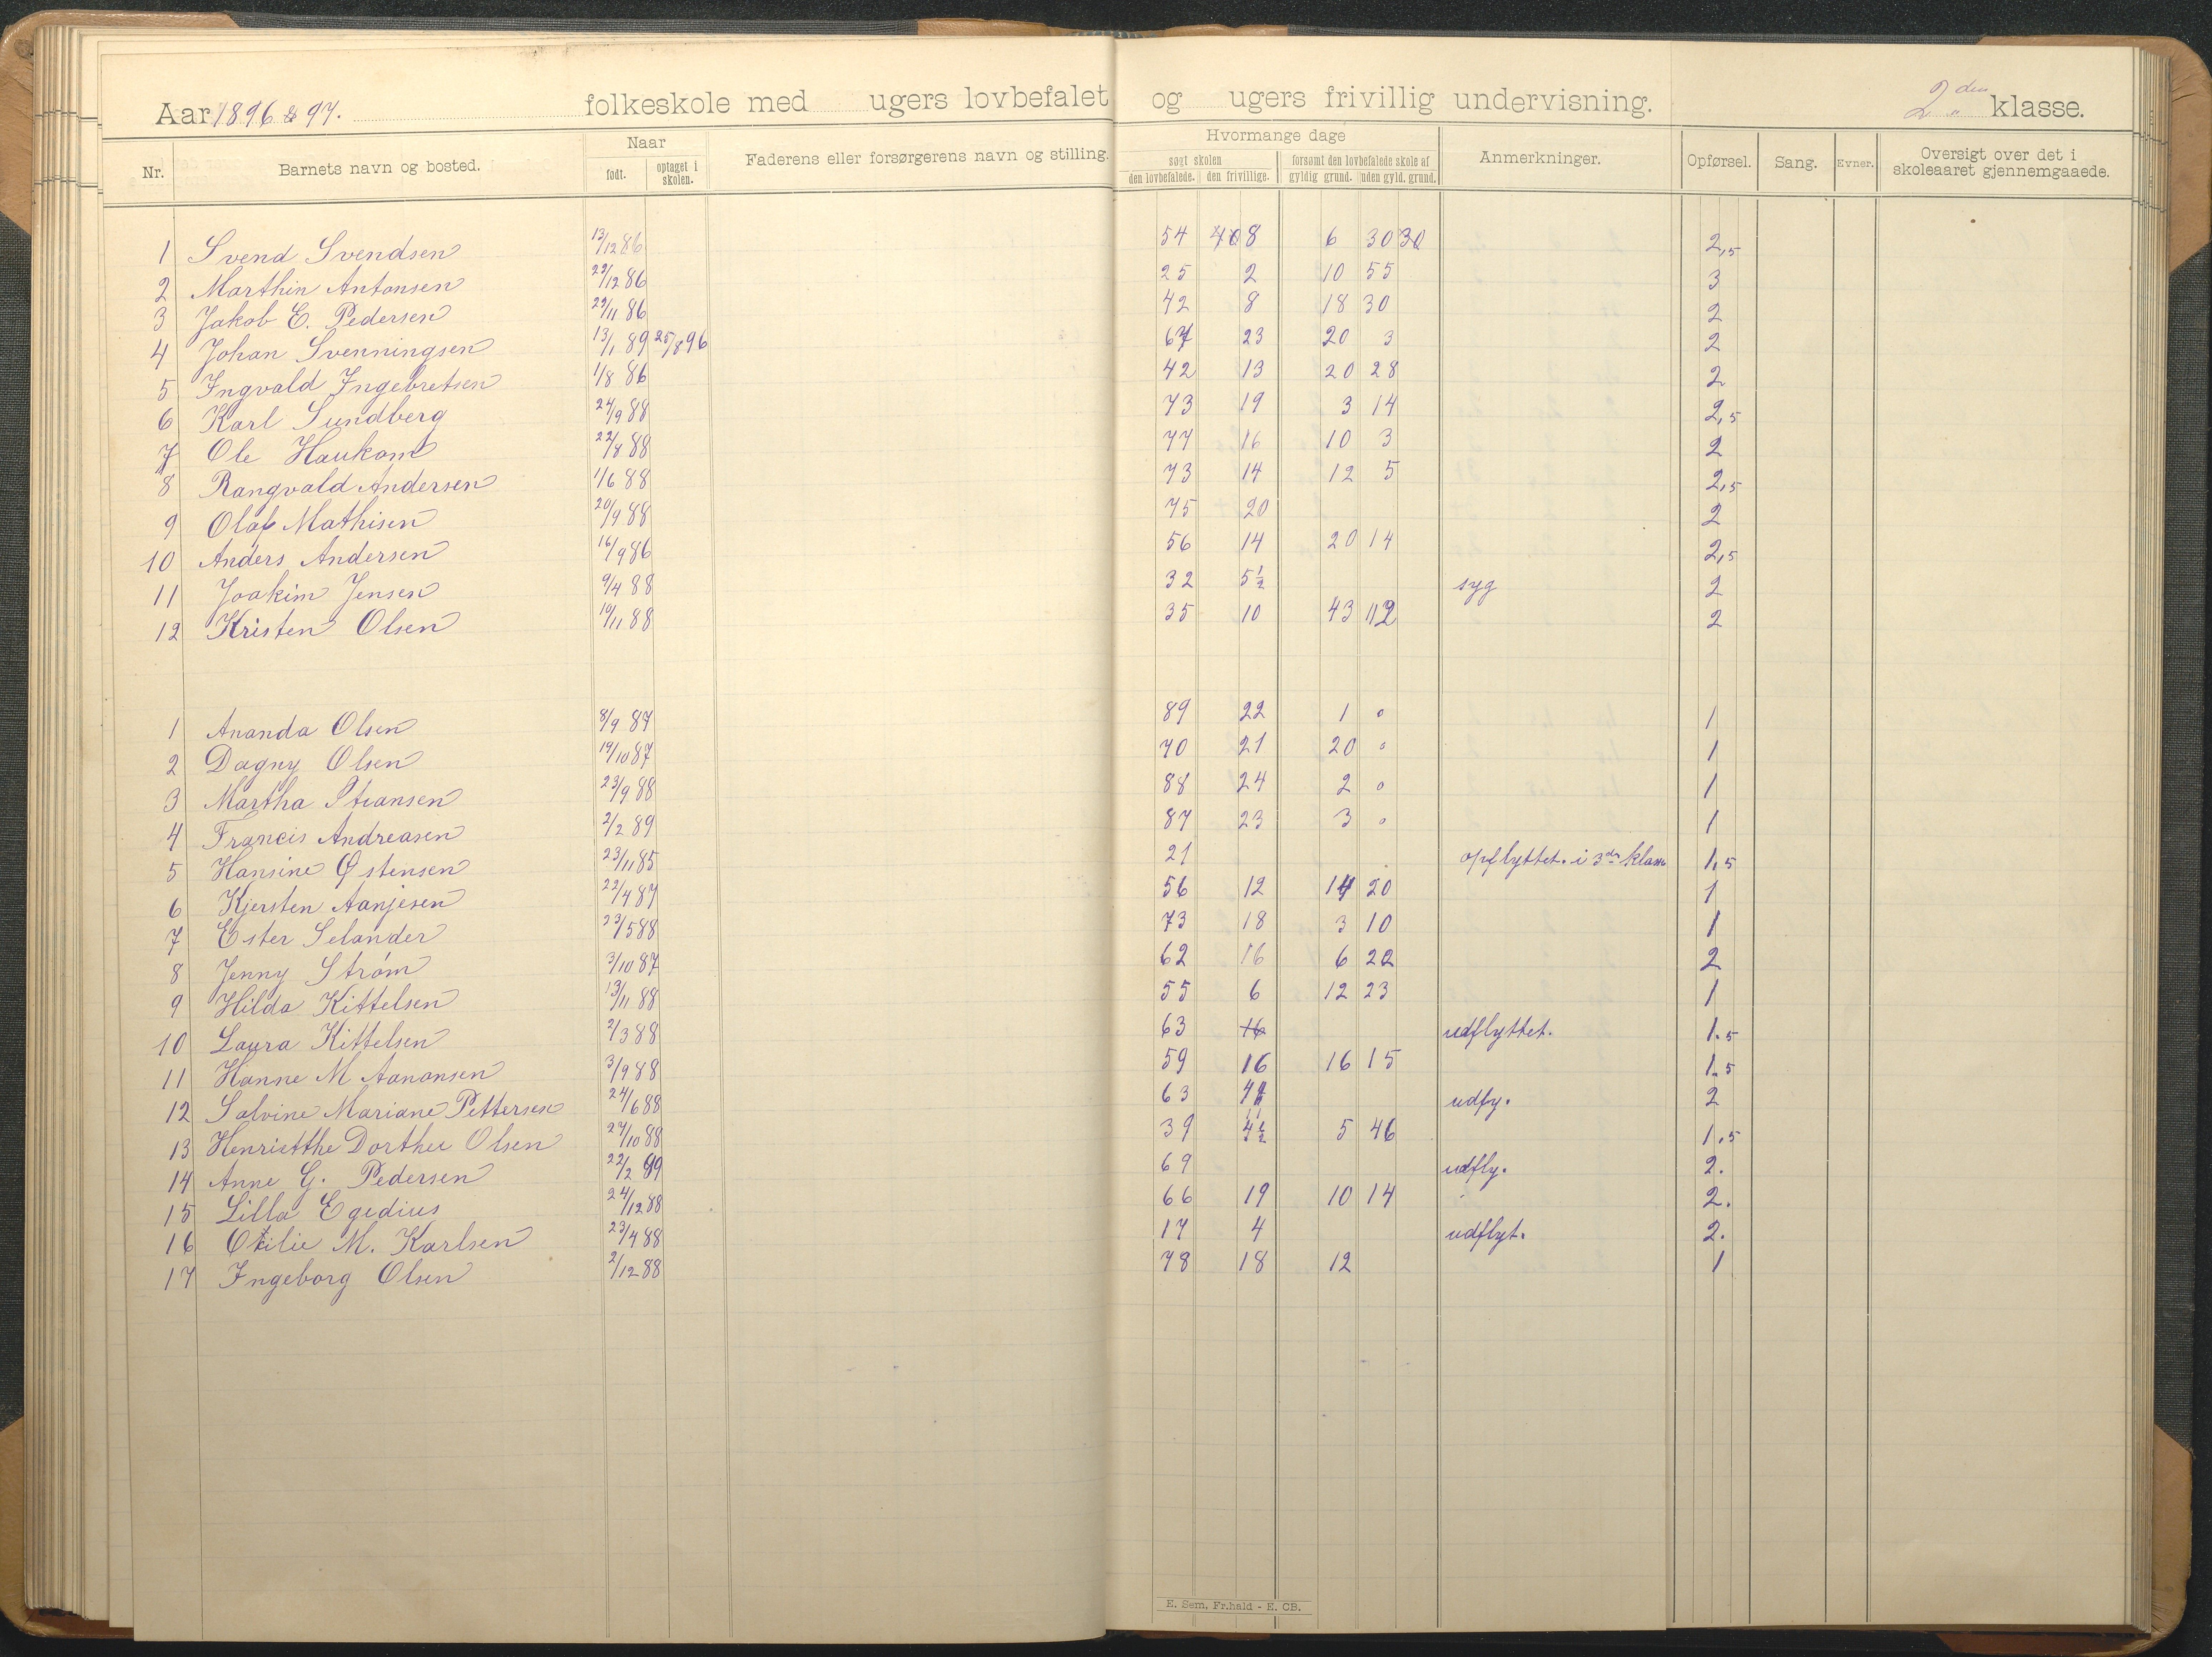 Aar 1896 & 97. folkeskole med ugers lovbefalet og ugers frivillig undervisning. 2den klasse.
Nr. Barnets navn og bosted. Naar født. optaget i skolen. Faderens eller forsørgerens navn og stilling. Hvormange dage søgt skolen den lovbefalede. den frivillige. forsømt den lovbefalede skole af gyldig grund. uden gyld. grund. Anmerkninger. Opførsel. Sang. Evner. Oversigt over det i skoleaaret gjennemgaaede.
1 Svend Svendsen 13/12 86 54 8 6 30 30 2,5
2 Marthin Antonsen 29/12 86 25 2 10 55 3
3 Jakob E. Pedersen 29/11 86 42 8 18 30 2
4 Johan Svenningsen 13/1 89 25/8 96 67 23 20 3 2
5 Ingvald Ingebretsen 1/8 86 42 13 20 28 2
6 Karl Sundberg 24/9 88 73 19 3 14 2,5
7 Ole Haukom 22/8 88 77 16 10 3 2
8 Rangvald Andersen 1/6 88 73 14 12 5 2,5
9 Olaf Mathisen 20/9 88 75 20 2
10 Anders Andersen 16/9 86 56 14 20 14 2,5
11 Joakim Jensen 9/4 88 32 5 1/2 syg 2
12 Kristen Olsen 10/11 88 35 10 43 12 2
1 Ananda Olsen 8/9 87 89 22 1 0 1
2 Dagny Olsen 19/10 87 70 21 20 0 1
3 Martha Stiansen 23/9 88 88 24 2 0 1
4 Francis Andreasen 2/2 89 87 23 3 0 1
5 Hansine Østensen 23/11 85 21 opflyttet. i 3de klasse 1,5
6 Kjersten Aanjesen 22/4 87 56 12 14 20 1
7 Ester Selander 23/5 88 73 18 3 10 1
8 Jenny Strøm 3/10 87 62 16 6 22 2
9 Hilda Kittelsen 13/11 88 55 6 12 23 1
10 Laura Kittelsen 2/3 88 63 16 udflyttet. 1.5
11 Hanne M Aanonsen 3/9 88 59 16 16 15 1.5
12 Salvine Mariane Pettersen 24/6 88 63 udfy. 2
13 Henrietthe Dorthee Olsen 27/10 88 39 4 1/2 5 46 1.5
14 Anne G. Pedersen 22/2 89 69 udfly. 2.
15 Lilla Egedius 24/12 88 66 19 10 14 2.
16 Otilie M. Karlsen 23/4 88 17 4 udflyt. 2.
17 Ingeborg Olsen 2/12 88 78 18 12 1
E. Sem, Fr.hald - E. CB.